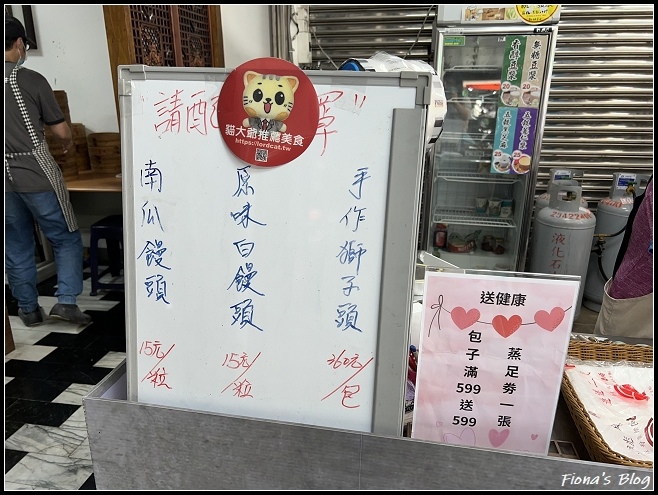 請配 罩"
貓大爺推薦美食
https://lordcat.tw
手作獅子頭
360元/包
原味白饅頭
15元/粒
南瓜饅頭
15元/粒
送健康
蒸足券一張
包子滿599送599
無糖豆漿
香醇豆漿
液化石
Fiona's Blog